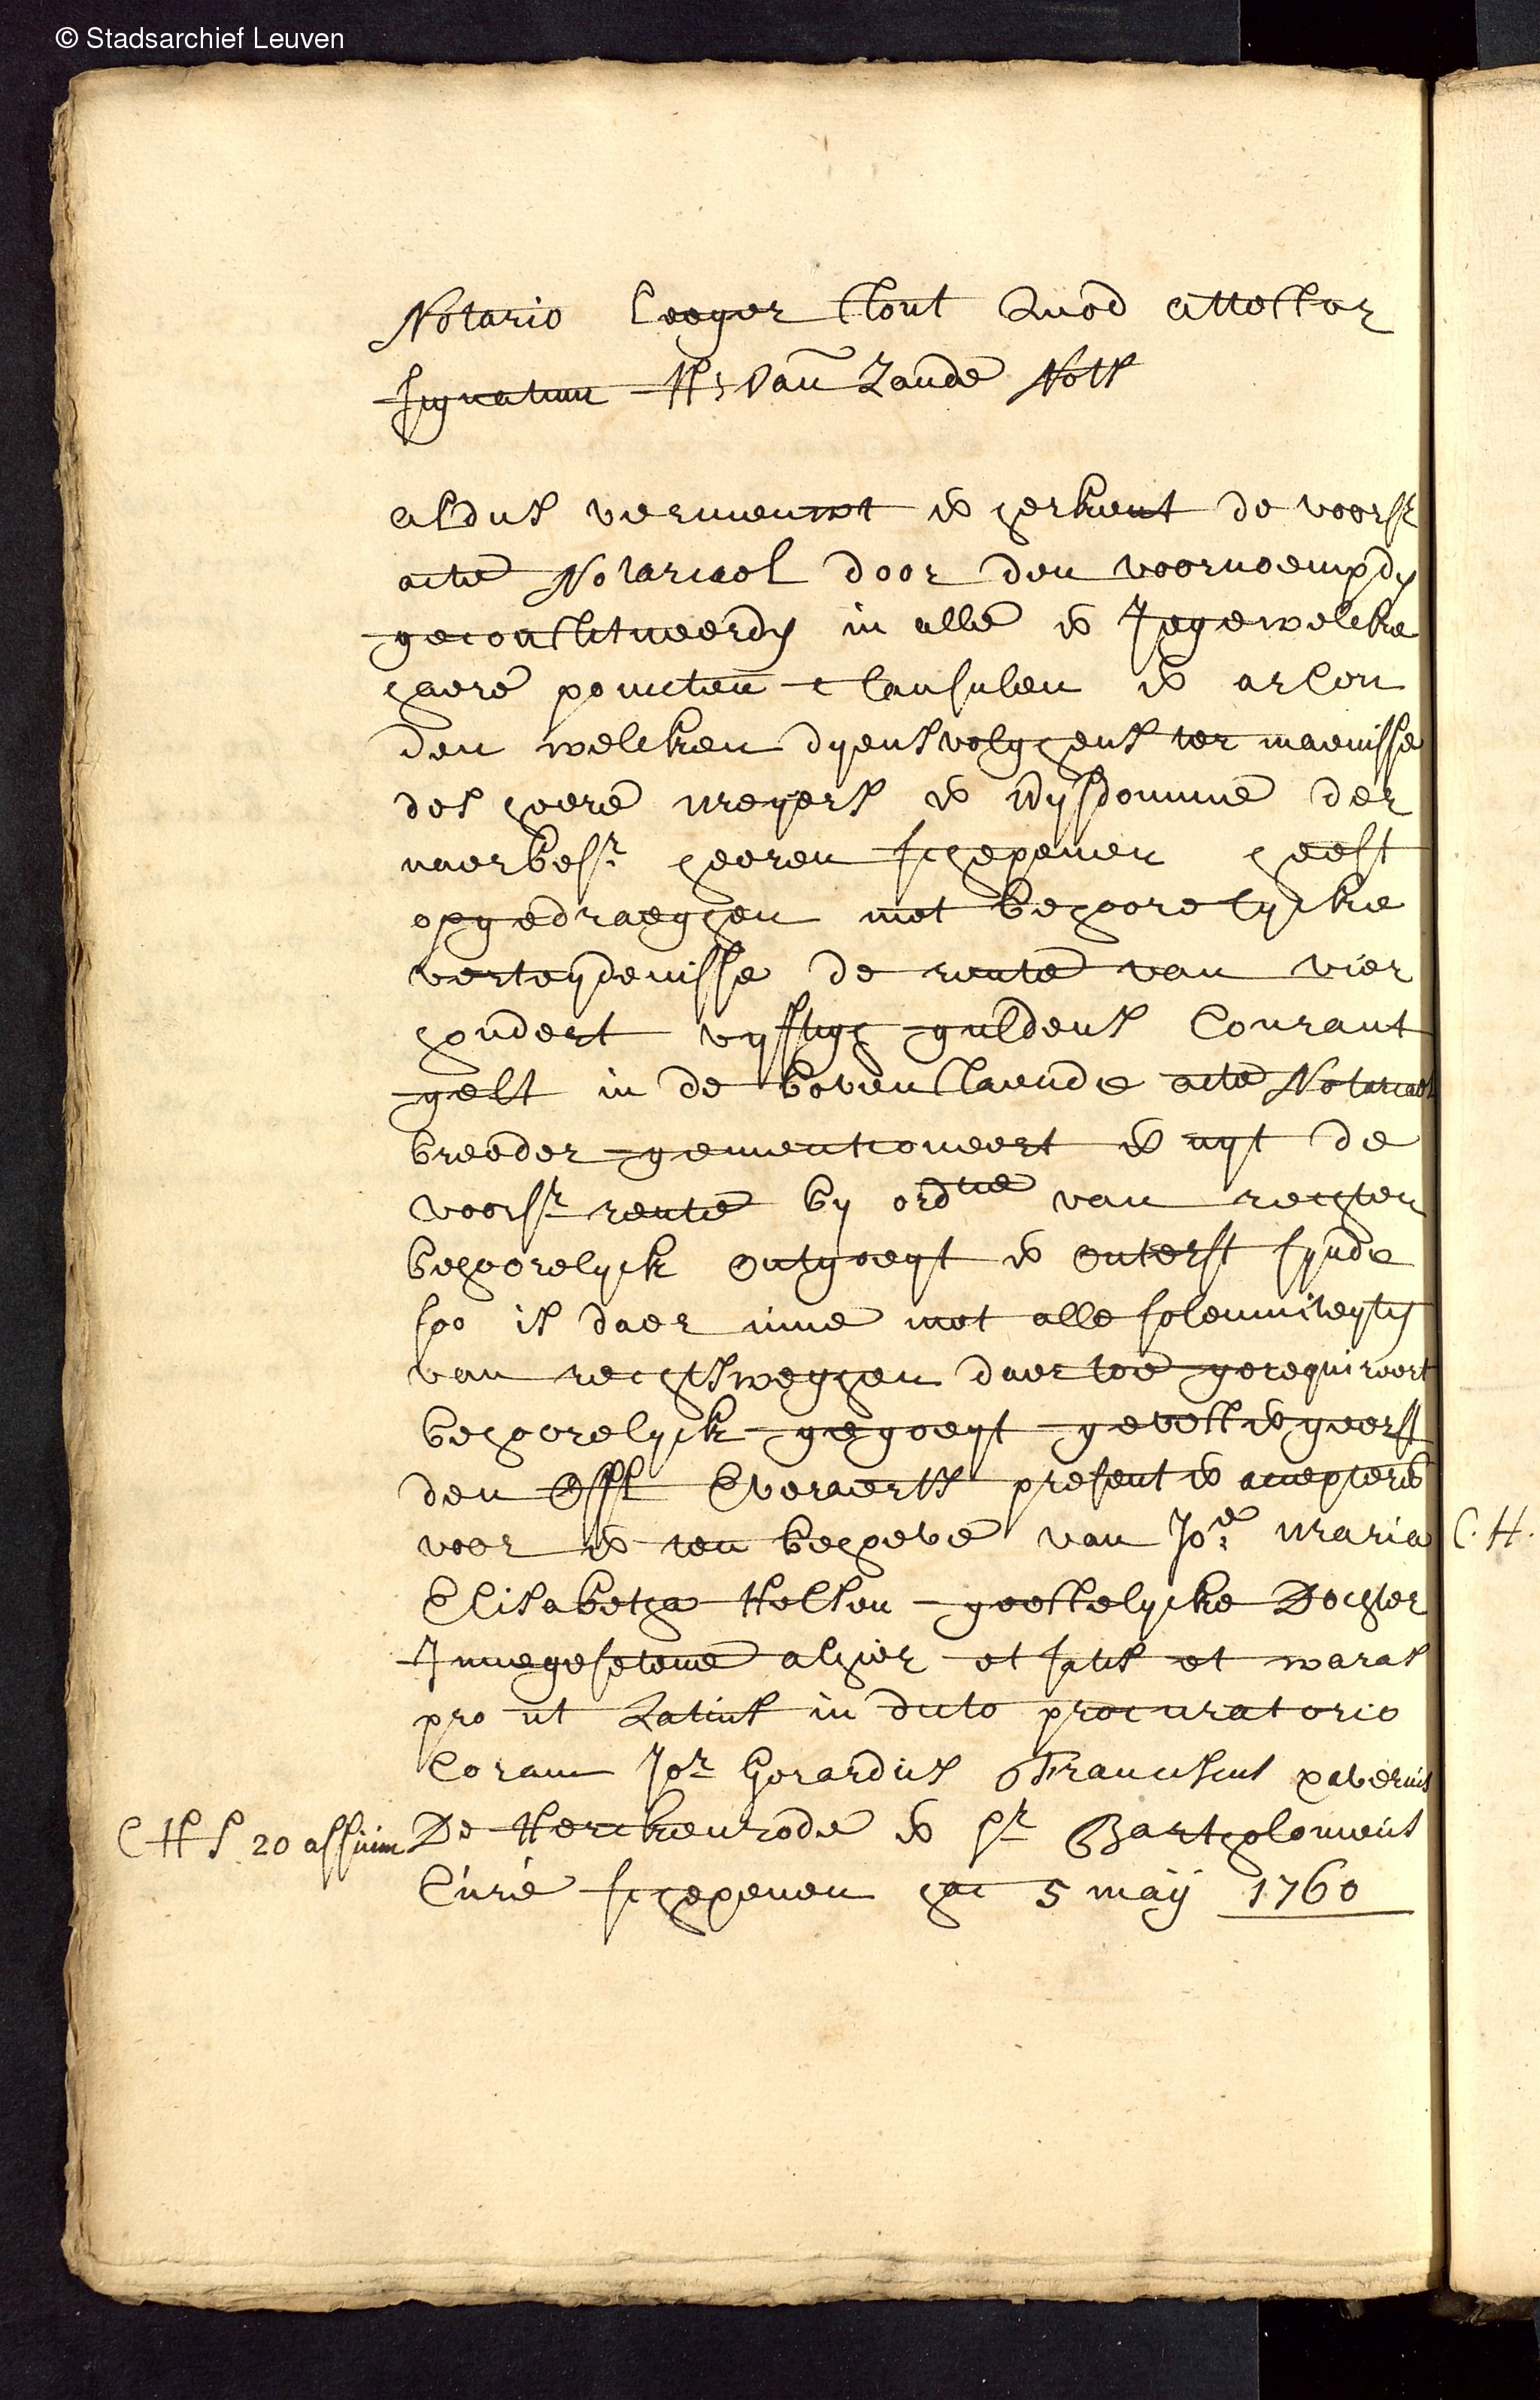 © Stadsarchief Leuven
Notario leeger stont Quod attestor
signatum H: Van Zande Nots
aldus vernieuwt en herkent de voorsr
acte Notariael door den voornoempdn
geconstitueerdn in alle en Jegewelcke
haere poincten clausulen en
den welcken dyensvolghens ter maenisse
des heere meyers en wysdomme der
naerbesr heeren schepenen heeft
opgedraeghen met behoorelycke
verteydenisse de rente van vier
hondert vyftigh guldens Courant
gelt in de bovenstaende acte Notariael
breeder gementioneert en uyt de
voorsr rente by ordne van rechten
behoorelyck ontgoeyt en onterft synde
soo is daer inne met alle solemniteytn
van rechtsweghen daer toe gerequireert
behoorelyck gegoeyt gevest en geerft
den Offl Everaerts present en accepterende
voor en ten behoeve van Joe Maria C. H.
Elisabetha Helsen geestelycke Dochter
Innegesetene alhier et satis et waras
pro ut Latius in dicto procuratorio
Coram Jor Gerardus Franciscus xaverius
C H S 20 assium De Herckenrode en Sr Bartholomeus
Curé schepenen hac 5 maÿ 1760